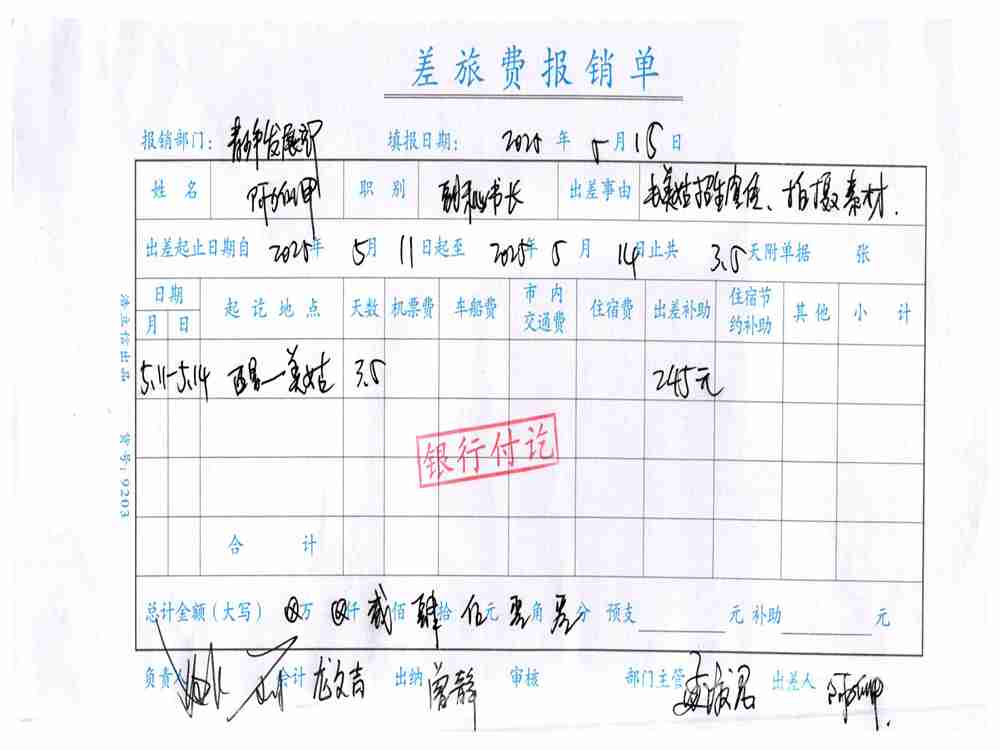 差旅费报销单
报销部门: 青少年发展部 填报日期: 2025年5月15日
姓名 职别 副秘书长 出差事由 美姑招生宣传、拍摄素材.
出差起止日期自2025年5月11日起至2025年5月14日止共3.5天附单据 张
日期 起讫地点 天数 机票费 车船费 市内交通费 住宿费 出差补助 住宿节约补助 其他 小计
月 日
5.11-5.14 西昌—美姑 3.5 245元
银行付讫
合计
总计金额(大写) ⊗万⊗仟贰佰肆拾伍元零角零分 预支 元 补助 元
负责人 会计 龙文吉 出纳 曾静 审核 部门主管 出差人
货号: 9203